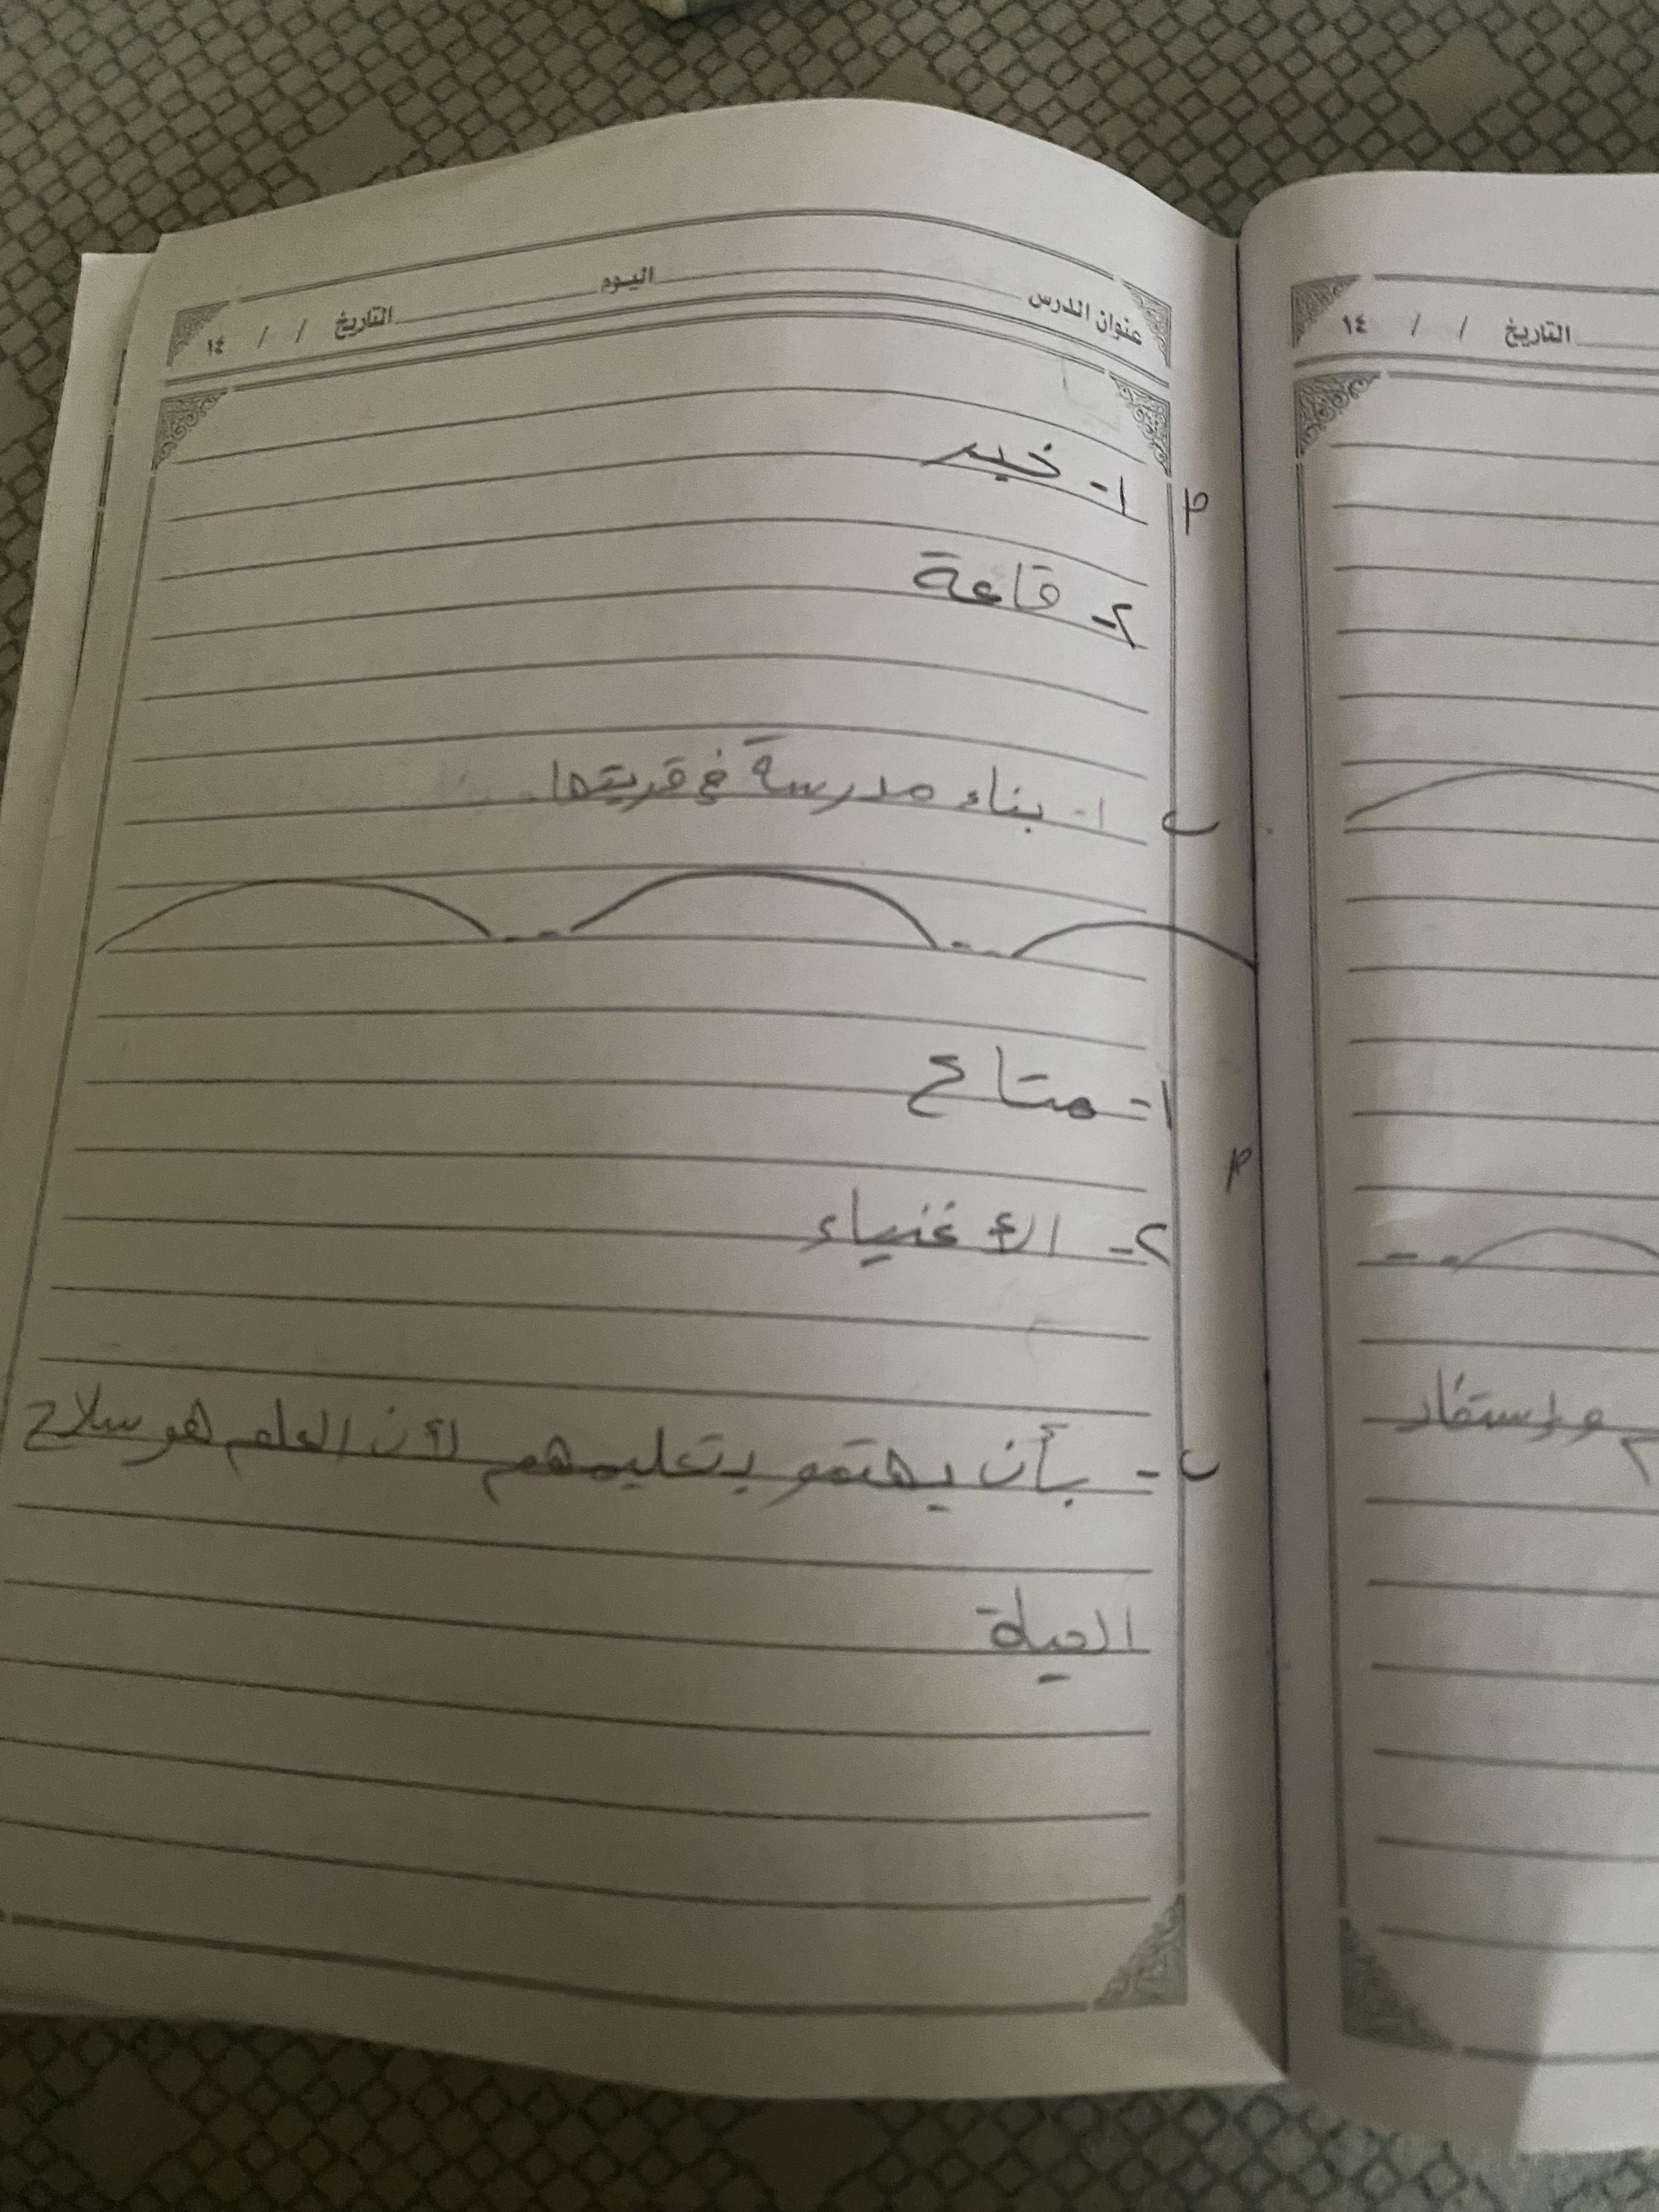 عنوان الدرس اليوم التاريخ / / ١٤
أ ١- خير
٢- قاعة
ب ١- بناء مدرسة في قريتها
١- متاح
أ
٢- الأغنياء
ب - بأن يهتمو بتعليمهم لأن العلم هو سلاح
الحياة
التاريخ / / ١٤
وإستفاد